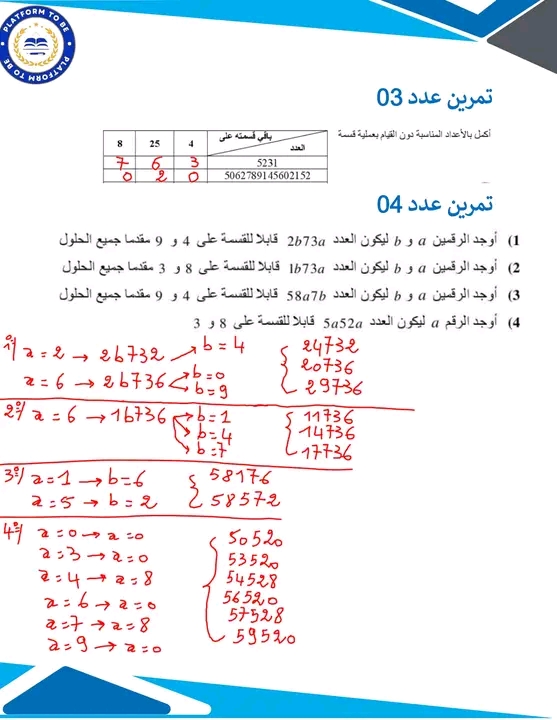 PLATFORM TO BE
PLATFORM TO BE
تمرين عدد 03
أكمل بالأعداد المناسبة دون القيام بعملية قسمة
باقي قسمته على العدد 4 25 8
5231 3 6 7
5062789145602152 0 2 0
تمرين عدد 04
1) أوجد الرقمين a و b ليكون العدد 2b73a قابلا للقسمة على 4 و 9 مقدما جميع الحلول
2) أوجد الرقمين a و b ليكون العدد 1b73a قابلا للقسمة على 8 و 3 مقدما جميع الحلول
3) أوجد الرقمين a و b ليكون العدد 58a7b قابلا للقسمة على 4 و 9 مقدما جميع الحلول
4) أوجد الرقم a ليكون العدد 5a52a قابلا للقسمة على 8 و 3
1°/ a = 2 → 2b732 → b = 4 { 24732
a = 6 → 2b736 → b = 0 20736
b = 9 29736
2°/ a = 6 → 1b736 → b = 1 { 11736
b = 4 14736
b = 7 17736
3°/ a = 1 → b = 6 { 58176
a = 5 → b = 2 58572
4°/ a = 0 → a = 0 { 50520
a = 3 → a = 0 53520
a = 4 → a = 8 54528
a = 6 → a = 0 56520
a = 7 → a = 8 57528
a = 9 → a = 0 59520